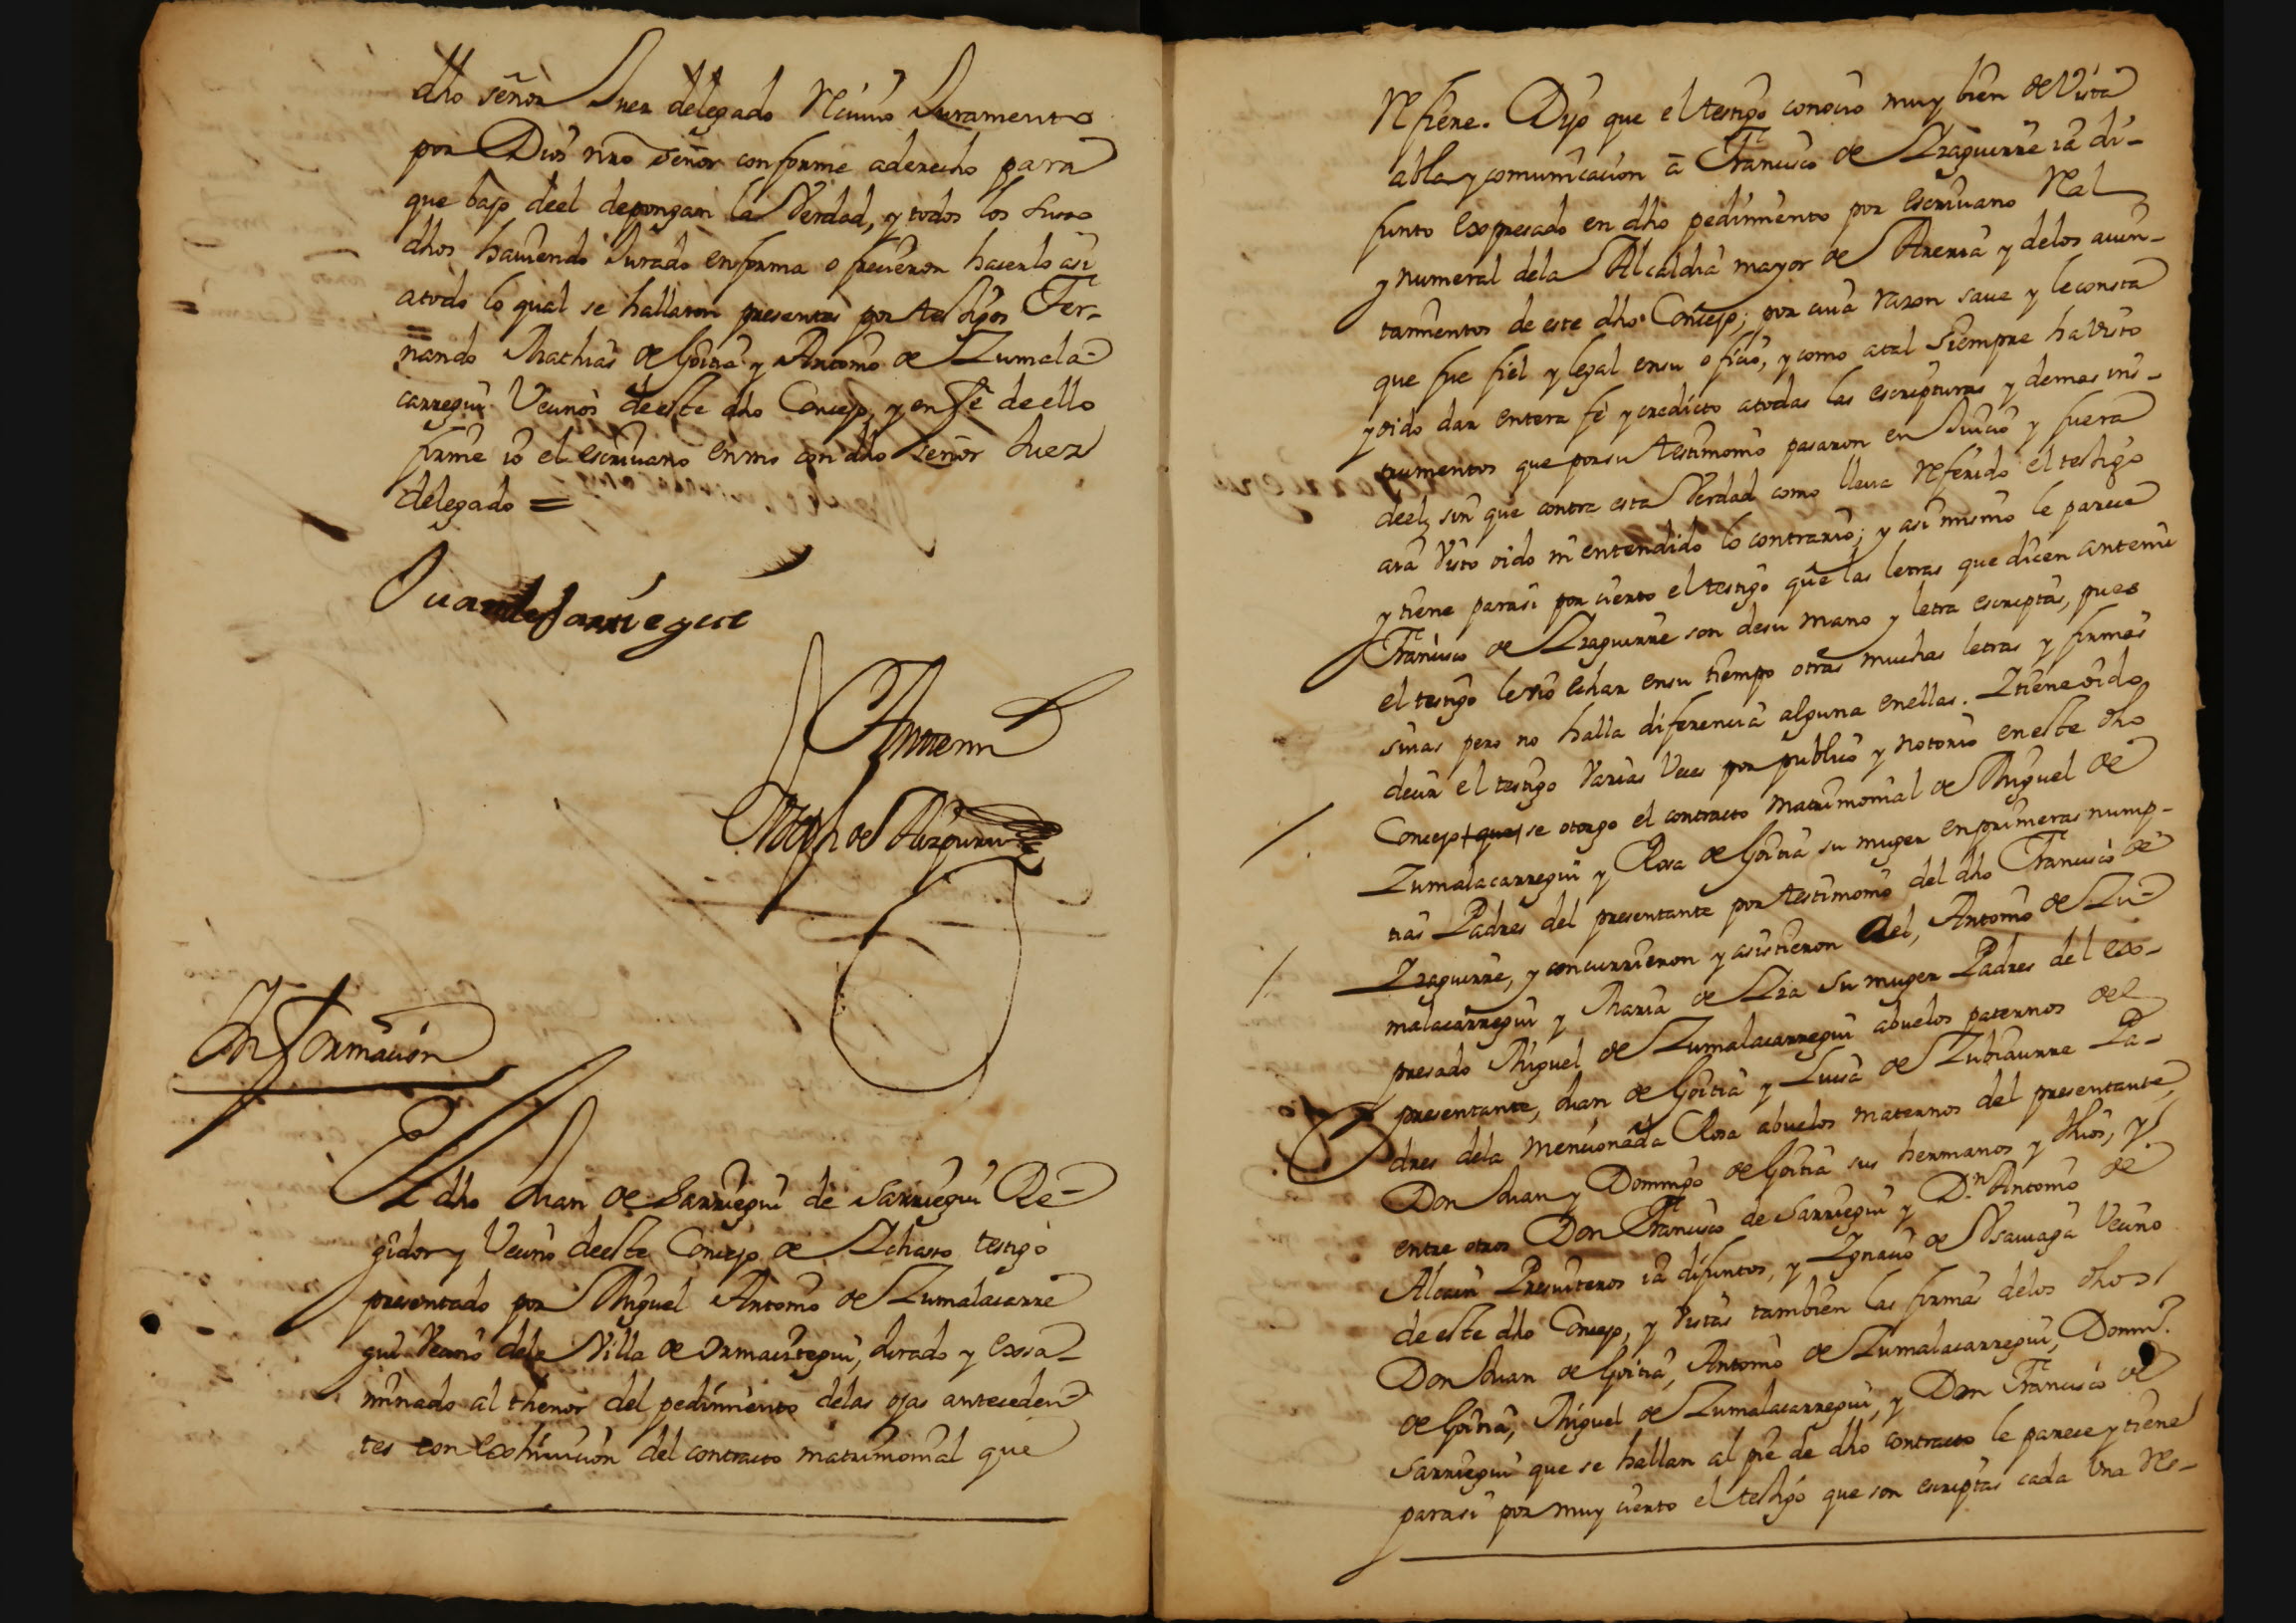 dho señor Juez delegado Reciuio Juramento
por Dios nro señor conforme aderecho para
que bajo deel depongan la Verdad, y todos los suso
dhos hauiendo Jurado enforma ofrecieron hacerlo asi
atodo lo qual se hallaron presentes por testigos Fer-
nando Mathias de Goitia y Antonio de Zumala-
carregui Vecinos deeste dho Concejo, y en Fe deello
firme io el escriuano enuno con dho señor Juez
delegado =
Juan de Sarriegui
Antemi
Joseph de Aizpuru
Informacion
El dho Juan de Sarriegui de Sarriegui Re-
gidor y Vecino deeste Concejo de Ichaso testigo
presentado por Miguel Antonio de Zumalacarre
gui Vecino dela Villa de Ormaiztegui, Jurado y exsa-
minado al thenor del pedimiento delas ojas anteceden-
tes con exhiuicion del contracto matrimonial que
Refiere. Dijo que el testigo conocio muy bien de Vista
abla y comunicacion a Francisco de Yzaguirre ia di-
funto expresado en dho pedimiento por escriuano Real
y numeral dela Alcaldia mayor de Areria y delos aiun-
tamientos de este dho Concejo; por cuia razon saue y leconsta
que fue fiel y legal ensu oficio, y como atal siempre ha visto
y oido dar entera fe y credicto atodas las escripturas y demas ins-
trumentos que por su testimonio pasaron en Juicio y fuera
deel, sin que contra esta Verdad como lleua Referido el testigo
aia Visto oido ni entendido lo contrario; y asi mismo le parece
y tiene parasi por cierto el testigo que las letras que dicen antemi
Francisco de Yzaguirre son desu mano y letra escriptas, pues
el testigo levio echar ensu tiempo otras muchas letras y firmas
suias pero no halla diferencia alguna enellas. Y tiene oido
decir el testigo Varias Veces por publico y notorio eneste dho
Concejo que se otorgo el contracto matrimonial de Miguel de
Zumalacarregui y Rosa de Goitia su muger enprimeras nump-
cias Padres del presentante por testimonio del dho Francisco de
Yzaguirre, y concurrieron y asistieron ael, Antonio de Zu-
malacarregui y Maria de Yza su muger Padres del ex-
presado Miguel de Zumalacarregui abuelos paternos del
presentante, Juan de Goitia y Luisa de Zubiaurre Pa-
dres dela mencionada Rosa abuelos maternos del presentante,
Don Juan y Domingo de Goitia sus hermanos y thios, y
entre otros Don Francisco de Sarriegui y Dn Antonio de
Alcain Presuiteros ia difuntos, y Ygnacio de Vsauiaga Vecino
de este dho Concejo, y Vistas tambien las firmas delos dhos
Don Juan de Goitia, Antonio de Zumalacarregui, Domin.
de Goitia, Miguel de Zumalacarregui, y Don Francisco de
Sarriegui que se hallan al pie de dho contracto le parece y tiene
parasi por muy cierto el testigo que son escriptas cada Vna Res-